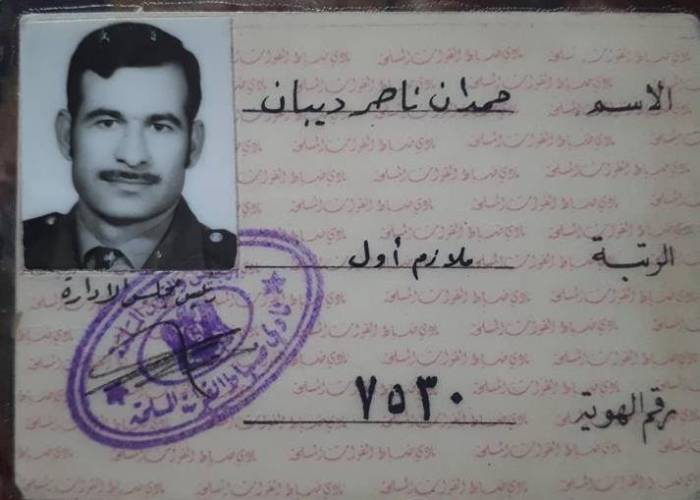 الاسم حمدان ناصر ديبان
الرتبة ملازم أول
رئيس مجلس الادارة
نادي ضباط القوات المسلحة
رقم الهوية ٧٥٣٠